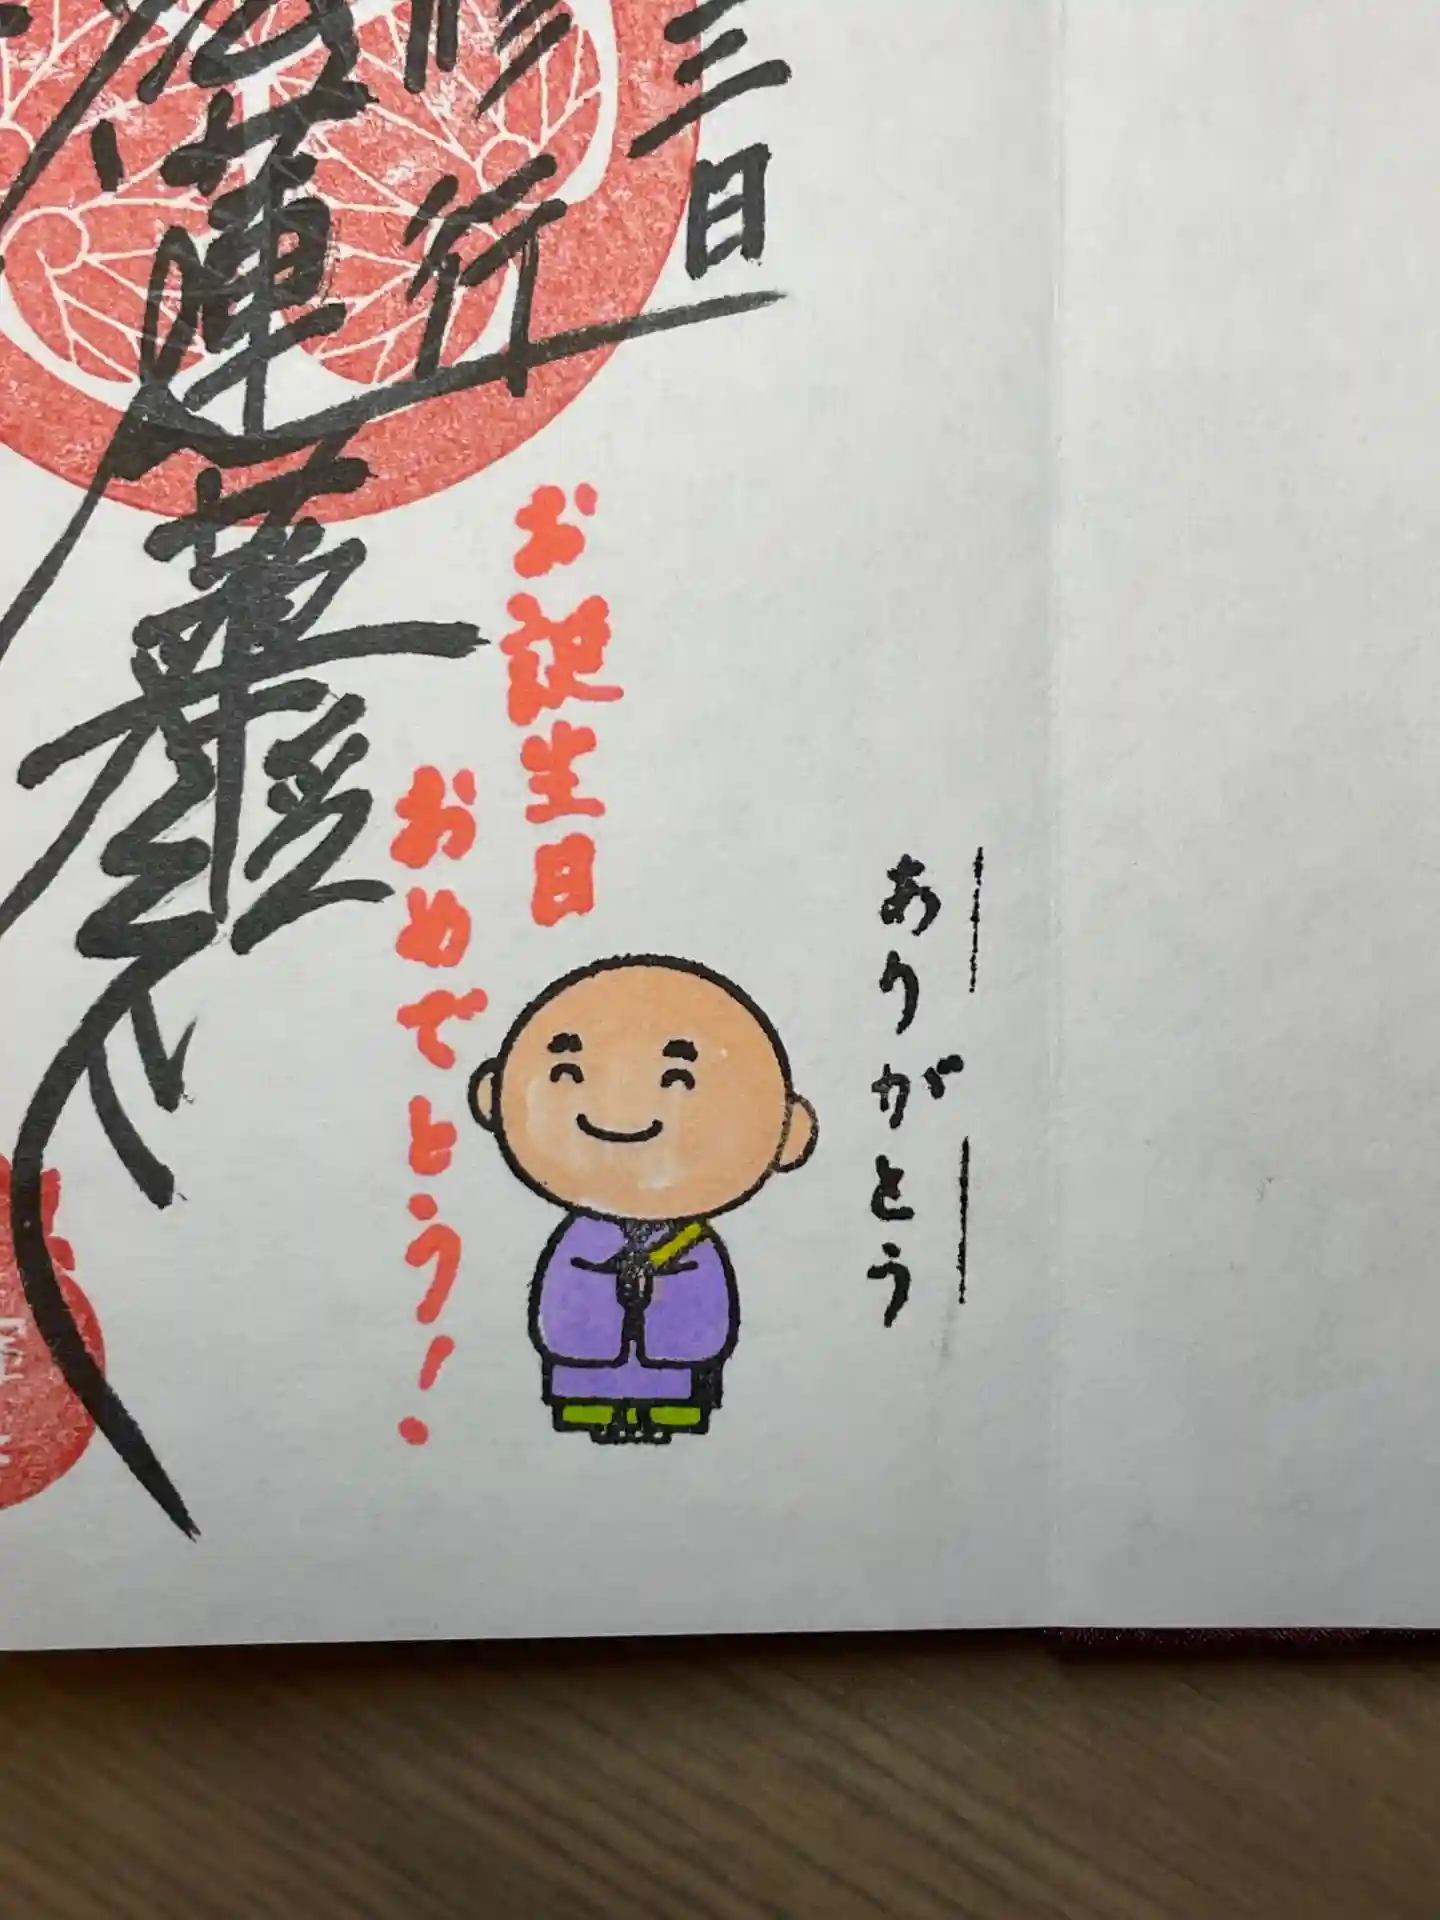 ありがとう
三日
お誕生日
おめでとう!
修行
法蓮華経